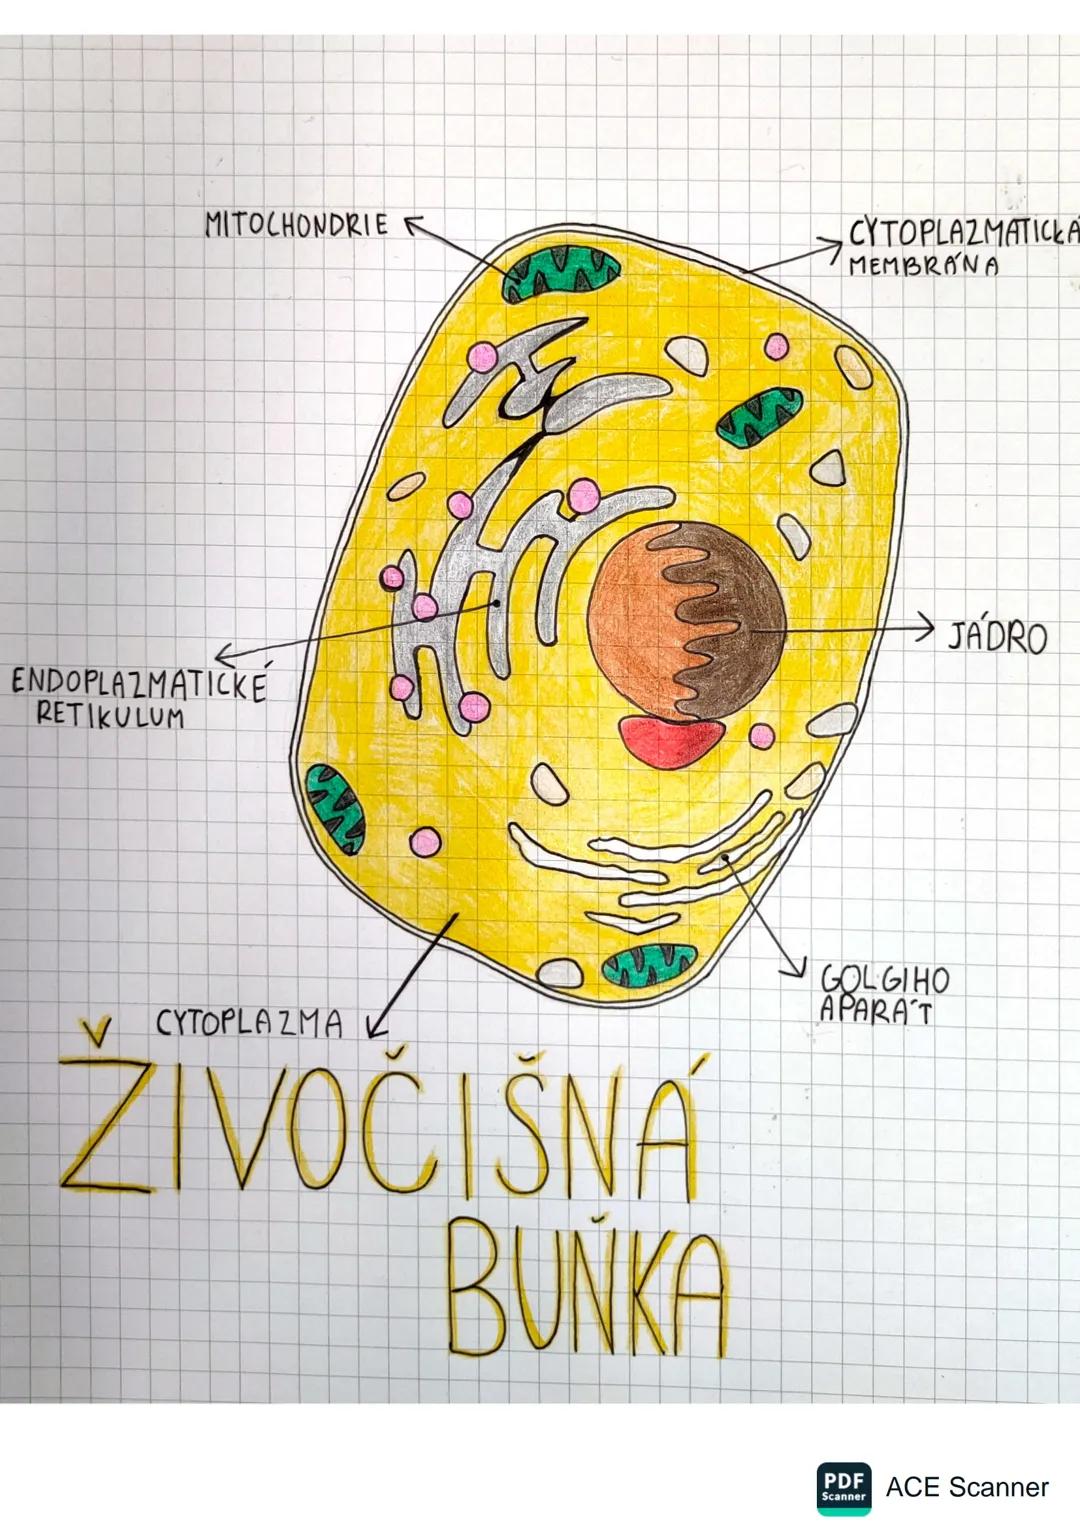 MITOCHONDRIE
CYTOPLAZMATICKÁ
MEMBRÁNA
JÁDRO
ENDOPLAZMATICKÉ
RETIKULUM
GOLGIHO
APARÁT
CYTOPLAZMA
ŽIVOČIŠNÁ
BUŇKA
PDF
Scanner
ACE Scanner